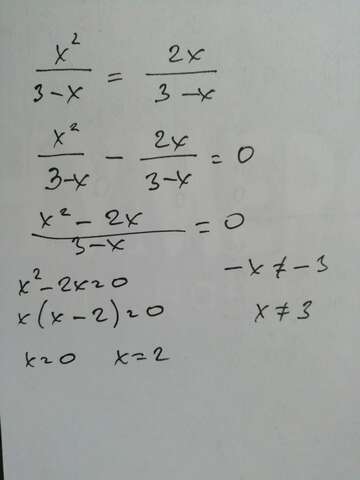 x²/(3-x) = 2x/(3-x)
x²/(3-x) - 2x/(3-x) = 0
(x² - 2x)/(3-x) = 0
x² - 2x = 0
-x ≠ -3
x(x - 2) = 0
x ≠ 3
x = 0 x = 2